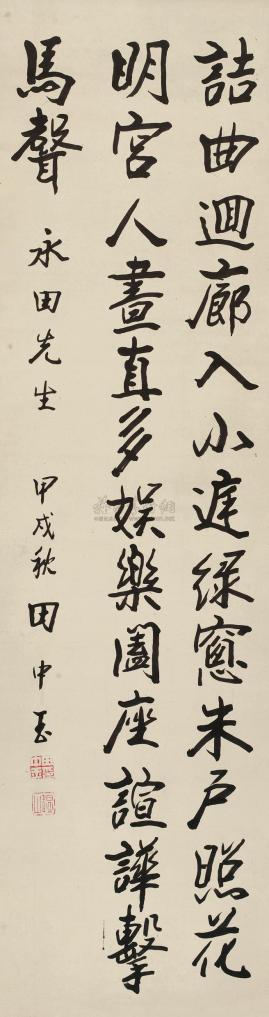 詰曲迴廊入小庭綠窗朱戶照花
明宮人晝直多娛樂闔座諠譁擊
馬聲
永田先生 甲戌秋 田中玉